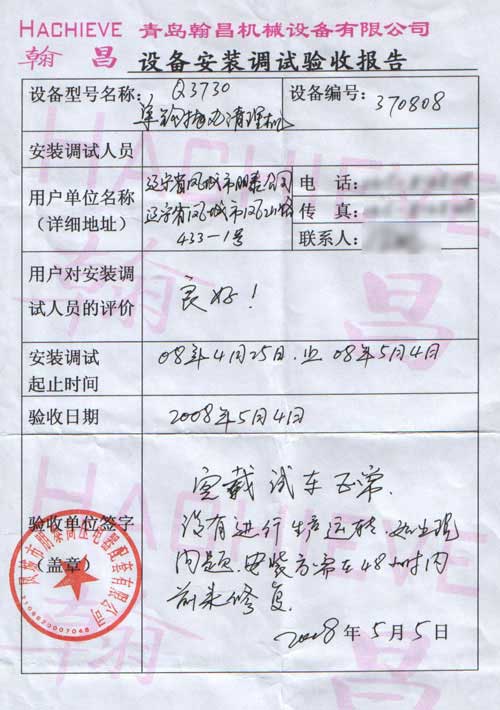 HACHIEVE 青岛翰昌机械设备有限公司
翰昌 设备安装调试验收报告
设备型号名称: Q3730 设备编号: 370808
单钩抛丸清理机
安装调试人员
用户单位名称 辽宁省凤城市朋泰公司 电 话:
(详细地址) 辽宁省凤城市凤山路 传 真:
433-1号 联系人:
用户对安装调
试人员的评价 良好!
安装调试 08年4月25日 止 08年5月4日
起止时间
验收日期 2008年5月4日
空载试车正常.
验收单位签字 没有进行生产运转.如出现
(盖章) 问题.安装方需在48小时内
前来修复.
2008年5月5日